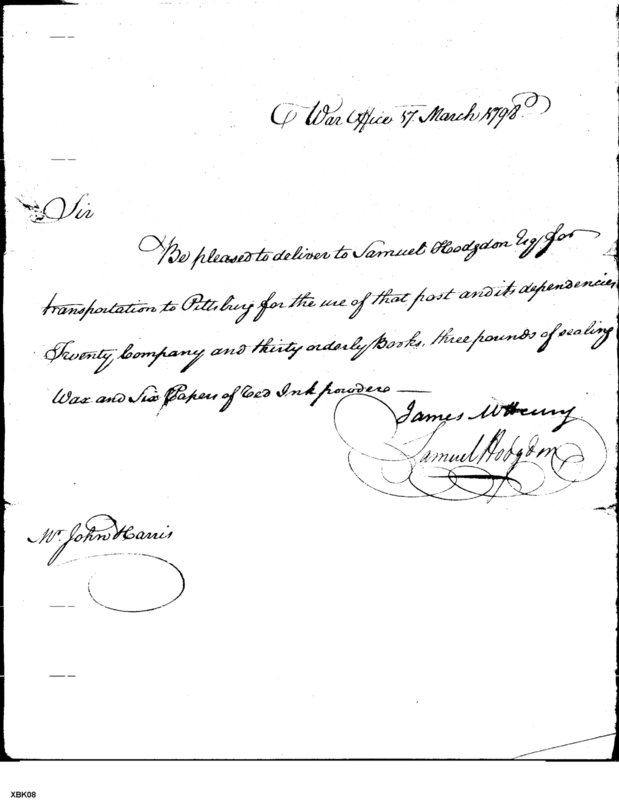 War Office 17 March 1798
Sir
Be pleased to deliver to Samuel Hodgdon Esq. for
transportation to Pittsburg for the use of that post and its dependencies
Twenty Company and thirty orderly Books, three pounds of sealing
Wax and Six Papers of red Ink powder
James McHenry
Samuel Hodgdon
Mr. John Harris
XBK08